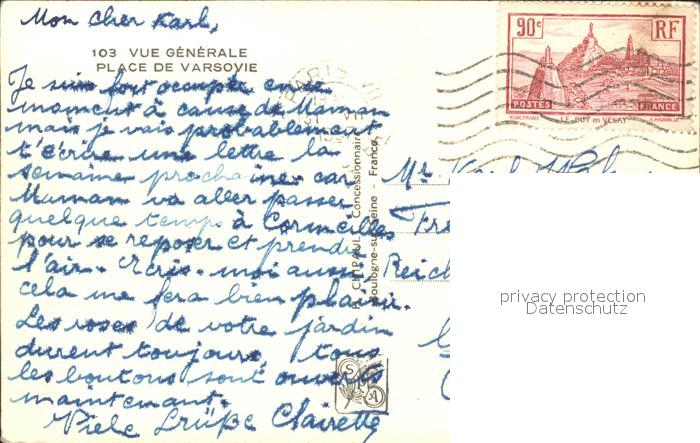 Mon cher Karl,
103 VUE GÉNÉRALE
PLACE DE VARSOVIE
Je suis fort occupée en ce
moment à cause de Maman
mais je vais probablement
t'écrire une lettre la
semaine prochaine car
Maman va aller passer
quelque temps à Cormeilles
pour se reposer et prendre
l'air. Écris-moi aussi,
cela me fera bien plaisir.
Les roses de votre jardin
durent toujours, tous
les boutons sont ouverts
maintenant.
Viele Grüße Clairette
PARIS VII
CHIPAULT Concessionnaire
Boulogne-sur-Seine - France
SPA
90c RF
POSTES FRANCE
LE PUY en VELAY
Mr Karl
Fre
Reich
privacy protection
Datenschutz